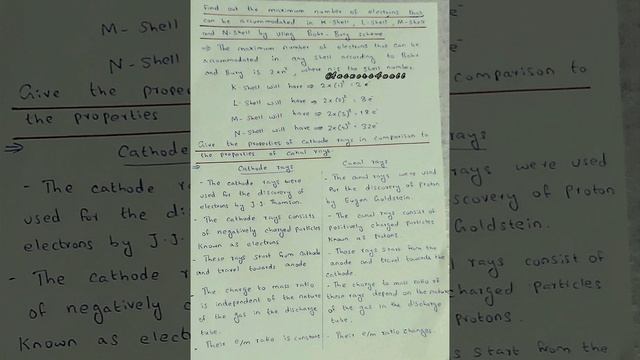 Find out the maximum number of electrons that
can be accommodated in K-shell, L-shell, M-shell
and N-shell by using Bohr-Bury scheme
⇒ The maximum number of electrons that can be
accommodated in any shell according to Bohr
and Bury is 2xn², where n is the shell number.
K shell will have ⇒ 2x(1)² = 2e⁻
L-shell will have ⇒ 2x(2)² = 8e⁻
M-shell will have ⇒ 2x(3)² = 18e⁻
N-shell will have ⇒ 2x(4)² = 32e⁻
Give the properties of cathode rays in comparison to
the properties of canal rays.
⇒ Cathode rays
- The cathode rays were
used for the discovery of
electrons by J.J. Thomson.
- The cathode rays consists
of negatively charged particles
known as electrons
- These rays start from cathode
and travel towards anode
- The charge to mass ratio
is independent of the nature
of the gas in the discharge
tube.
- Their e/m ratio is constant
Canal rays
- The canal rays were used
for the discovery of proton
by Eugen Goldstein.
- The canal rays consist of
positively charged particles
known as protons.
- These rays start from the
anode and travel towards the
cathode.
- The charge to mass ratio of
these rays depend on the nature
of the gas in the discharge
tube.
- Their e/m ratio changes.
M- Shell
N- Shell
Give the proper
the properties
⇒
Cathod
- The cathode r
used for the di
electrons by J.J.
- The cathode r
of negatively c
known as elect
comparison to
rays
rays were used
scovery of proton
Goldstein.
l rays consist of
charged particles
protons.
s start from the